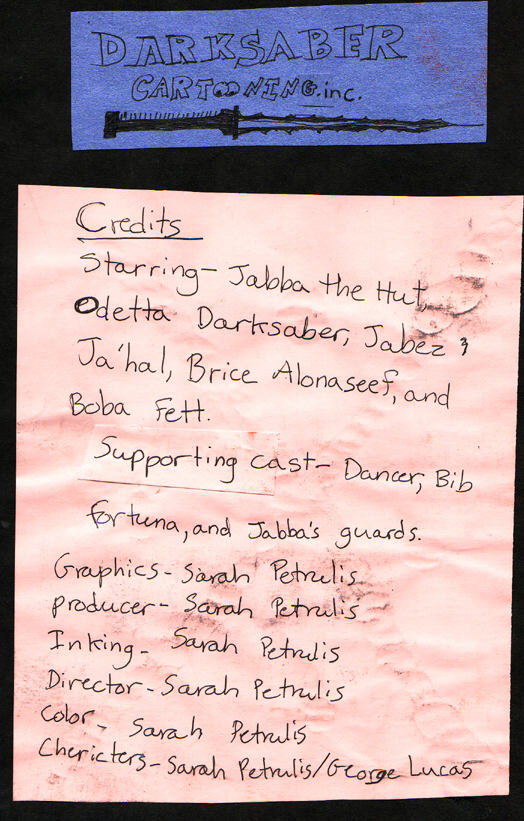 DARKSABER
CARTOONING.inc.
Credits
Starring- Jabba the Hut,
Odetta Darksaber, Jabez &
Ja'hal, Brice Alonaseef, and
Boba Fett.
Supporting cast- Dancer, Bib
fortuna, and Jabba's guards.
Graphics- Sarah Petrulis
producer- Sarah Petrulis
Inking- Sarah Petrulis
Director- Sarah Petrulis
Color- Sarah Petrulis
Chericters- Sarah Petrulis/George Lucas